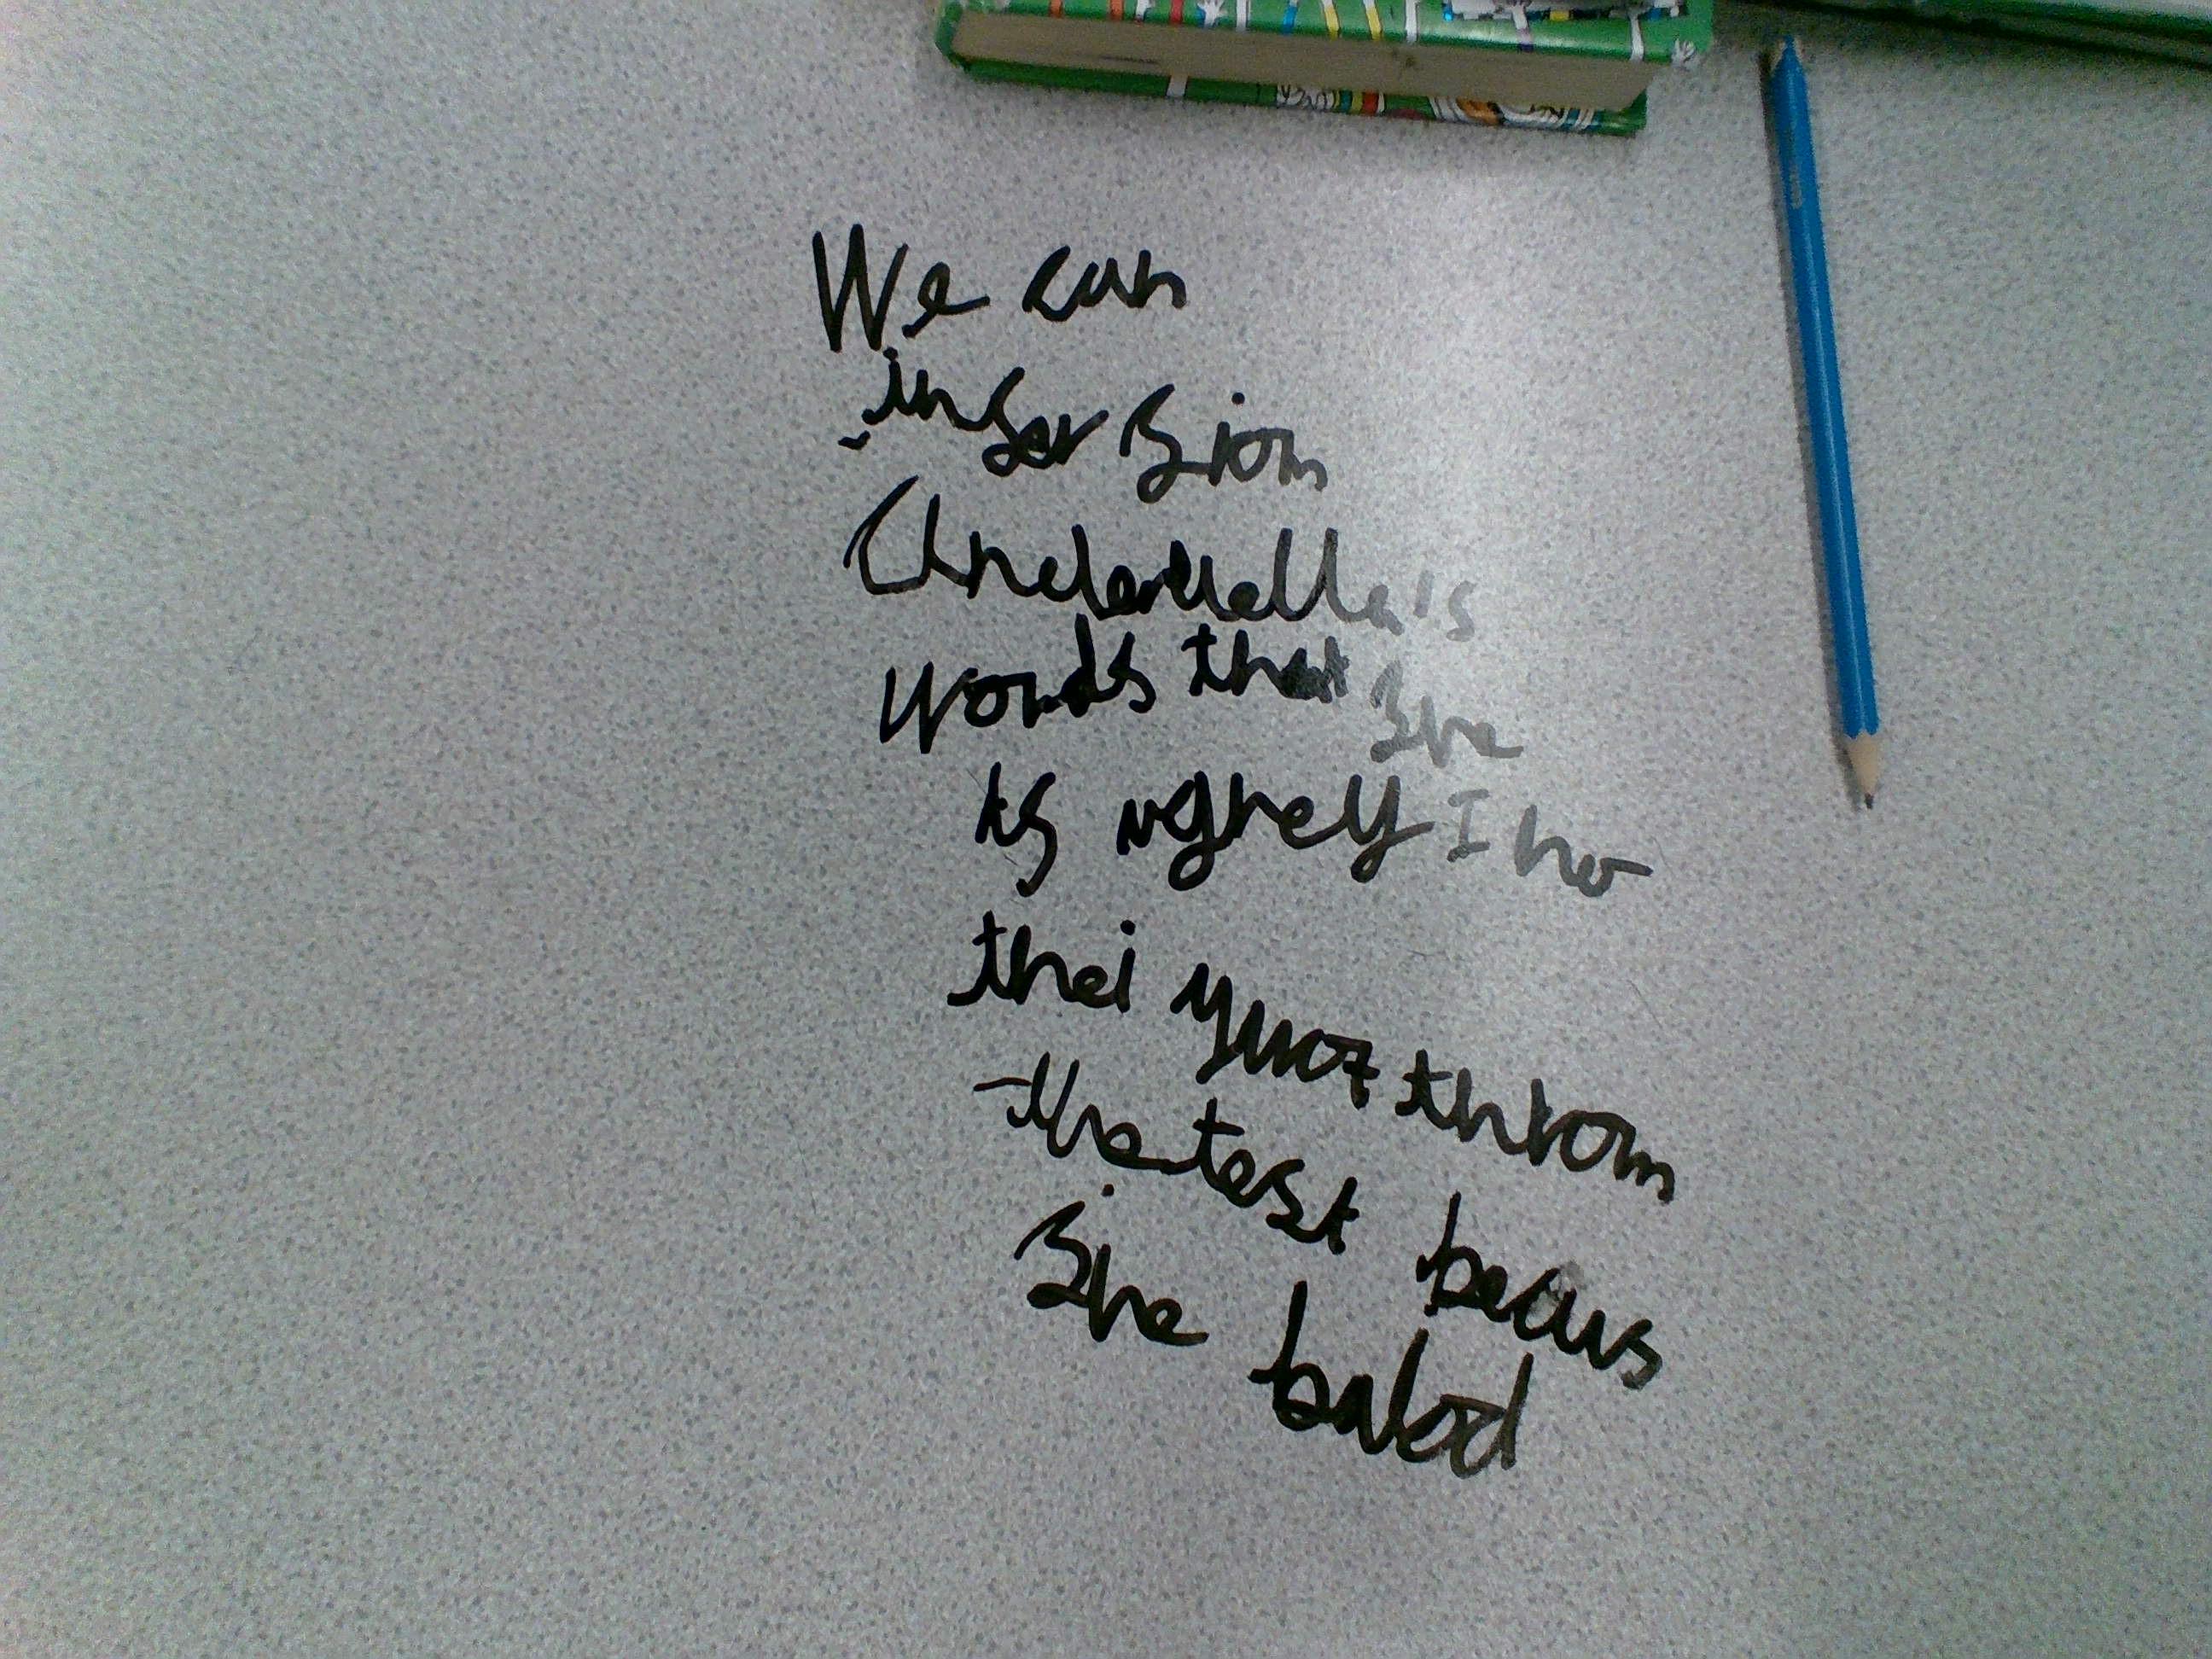 We can
infer from
Cinderella's
words that she
is ugrely I no
thei yuoz throm
the test becaus
She